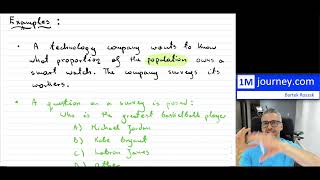 Examples :
• A technology company wants to know
what proportion of the population owns a
smart watch. The company surveys its
workers.
• A question on a survey is posed:
Who is the greatest basketball player
A) Michael Jordan
B) Kobe Bryant
C) Lebron James
D) Other
1M
journey.com
Bartek Roszak